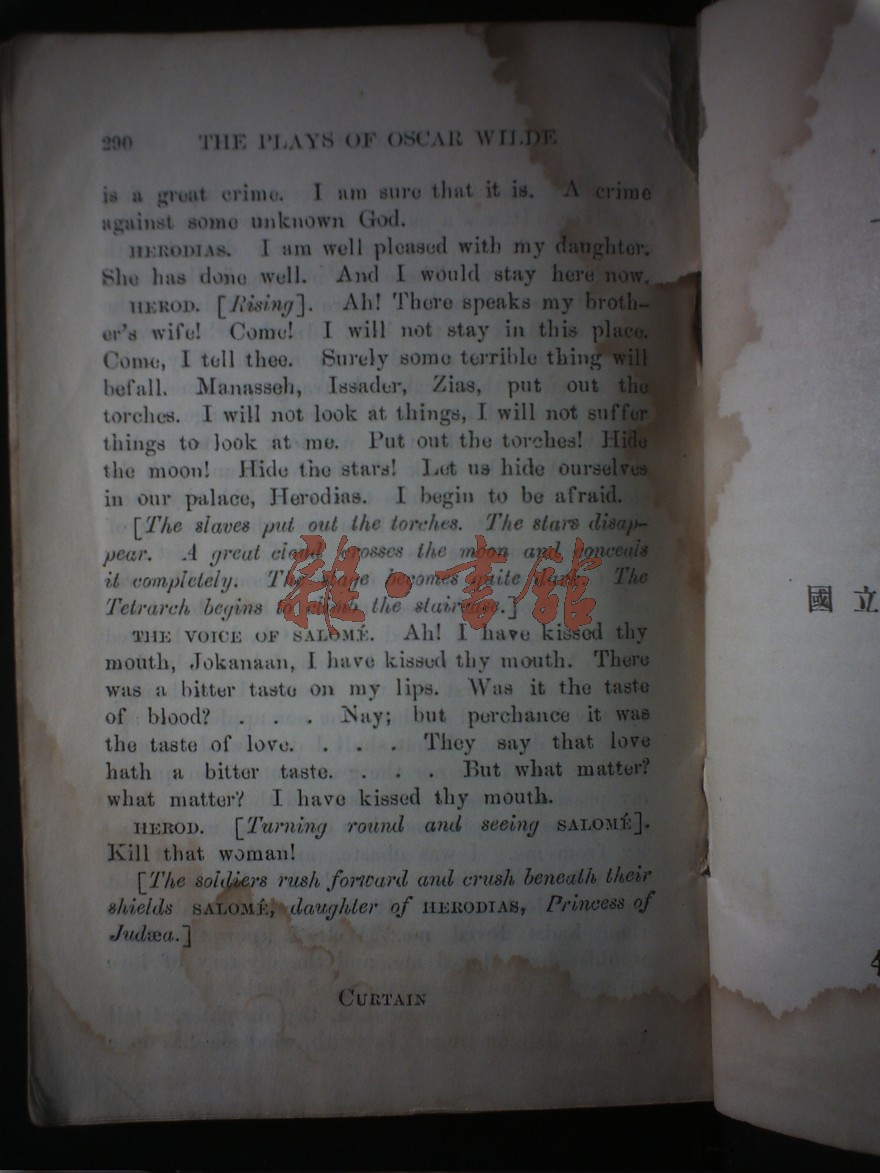 290 THE PLAYS OF OSCAR WILDE
is a great crime. I am sure that it is. A crime
against some unknown God.
HERODIAS. I am well pleased with my daughter.
She has done well. And I would stay here now.
HEROD. [Rising]. Ah! There speaks my broth-
er's wife! Come! I will not stay in this place.
Come, I tell thee. Surely some terrible thing will
befall. Manasseh, Issader, Zias, put out the
torches. I will not look at things, I will not suffer
things to look at me. Put out the torches! Hide
the moon! Hide the stars! Let us hide ourselves
in our palace, Herodias. I begin to be afraid.
[The slaves put out the torches. The stars disap-
pear. A great cloud crosses the moon and conceals
it completely. The stage becomes quite dark. The
Tetrarch begins to climb the staircase.]
雜·書館
THE VOICE OF SALOMÉ. Ah! I have kissed thy
mouth, Jokanaan, I have kissed thy mouth. There
was a bitter taste on my lips. Was it the taste
of blood? . . . Nay; but perchance it was
the taste of love. . . . They say that love
hath a bitter taste. . . . But what matter?
what matter? I have kissed thy mouth.
HEROD. [Turning round and seeing SALOMÉ].
Kill that woman!
[The soldiers rush forward and crush beneath their
shields SALOMÉ, daughter of HERODIAS, Princess of
Judæa.]
CURTAIN
國立